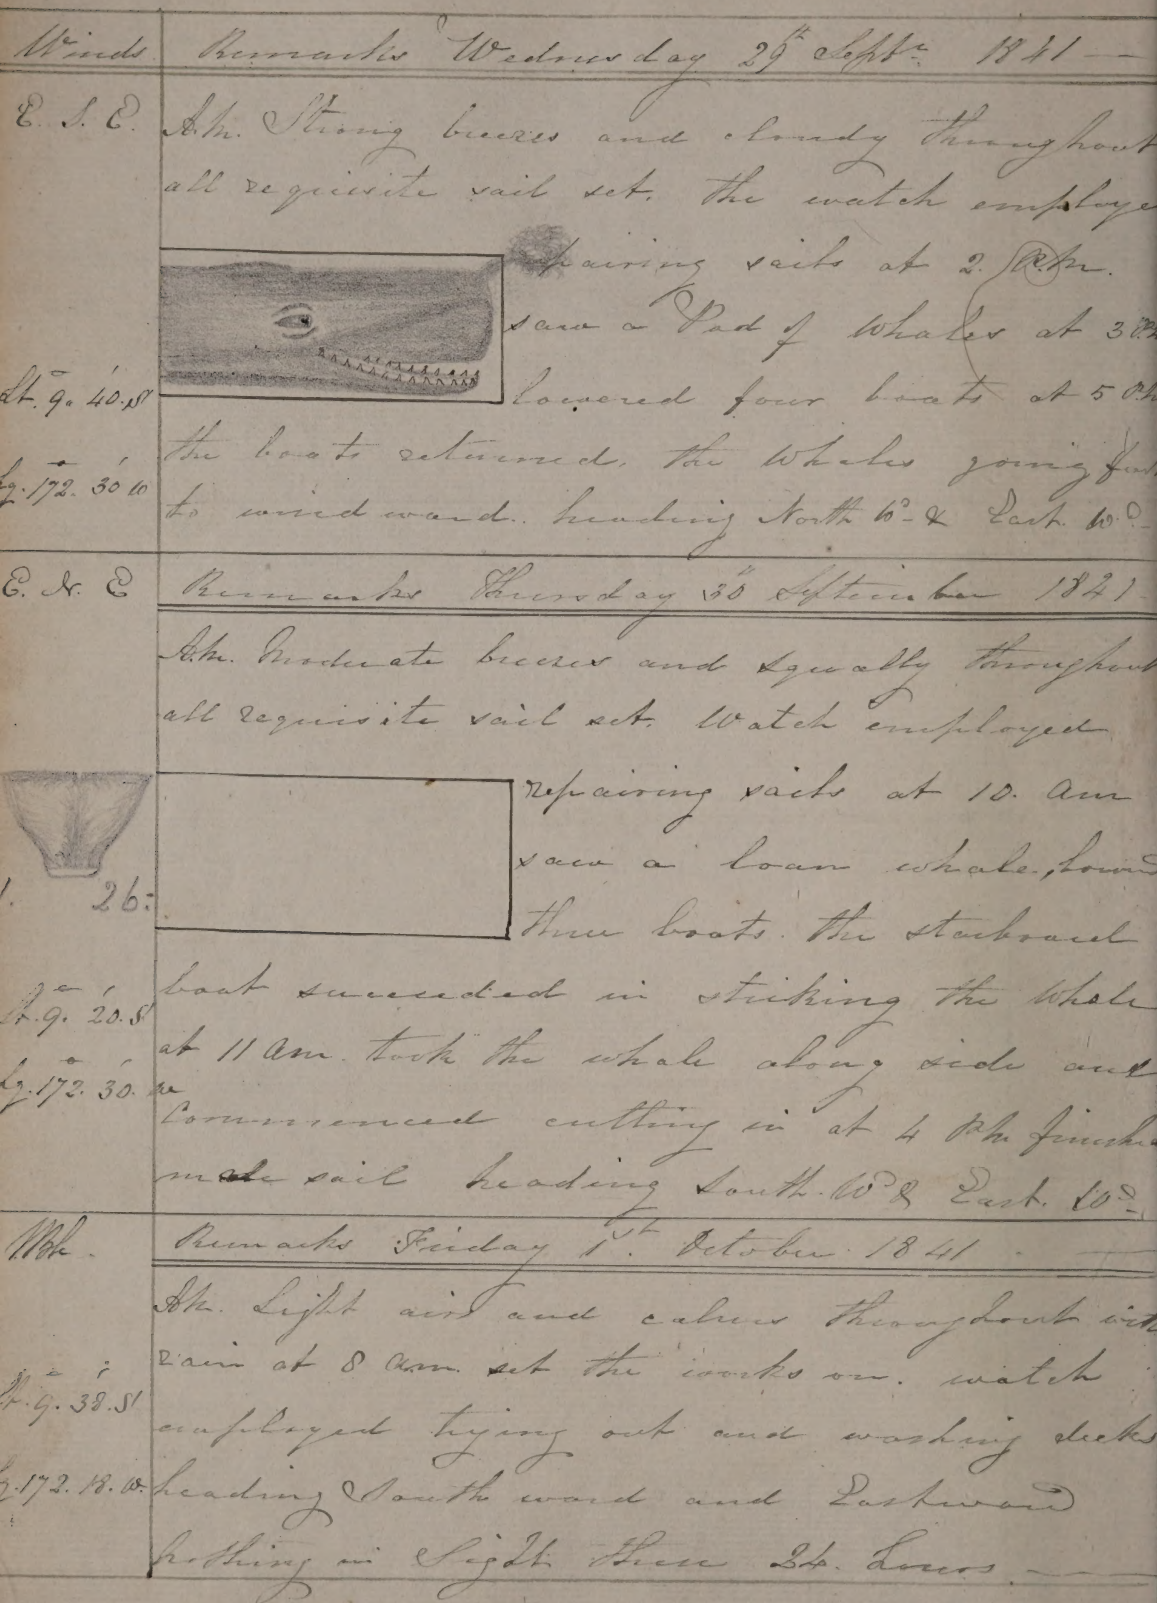 Winds Remarks Wednesday 29th Septr 1841
E. S. E. A.M. Strong breezes and cloudy throughout
all requisite sail set. The watch employe
repairing sails at 2. P.M.
saw a Pod of Whales at 3 P.M
Lt. 9. 40. S lowered four boats at 5 P.M
the boats returned. The Whales going fast
Lg. 172. 30 W to windward. heading North Wd & East. Wd
E. N. E Remarks Thursday 30th September 1841
A.M. Moderate breezes and squally throughout
all requisite sail set. Watch employed
repairing sails at 10. am
saw a loan whale, lowered
1. 26: three boats. The starboard
boat succeeded in striking the Whale
Lt. 9. 20. S at 11 am. took the whale along side and
Lg. 172. 30. W Commenced cutting in at 4 P.M finishe
made sail heading South. Wd & East. Wd
Remarks Friday 1st. October 1841
A.M. Light airs and calms throughout with
rain at 8 a.m. set the works on. watch
Lt. 9. 38. S employed trying out and washing decks
Lg. 172. 18. W. heading South ward and Eastward
nothing in Sight these 24. hours